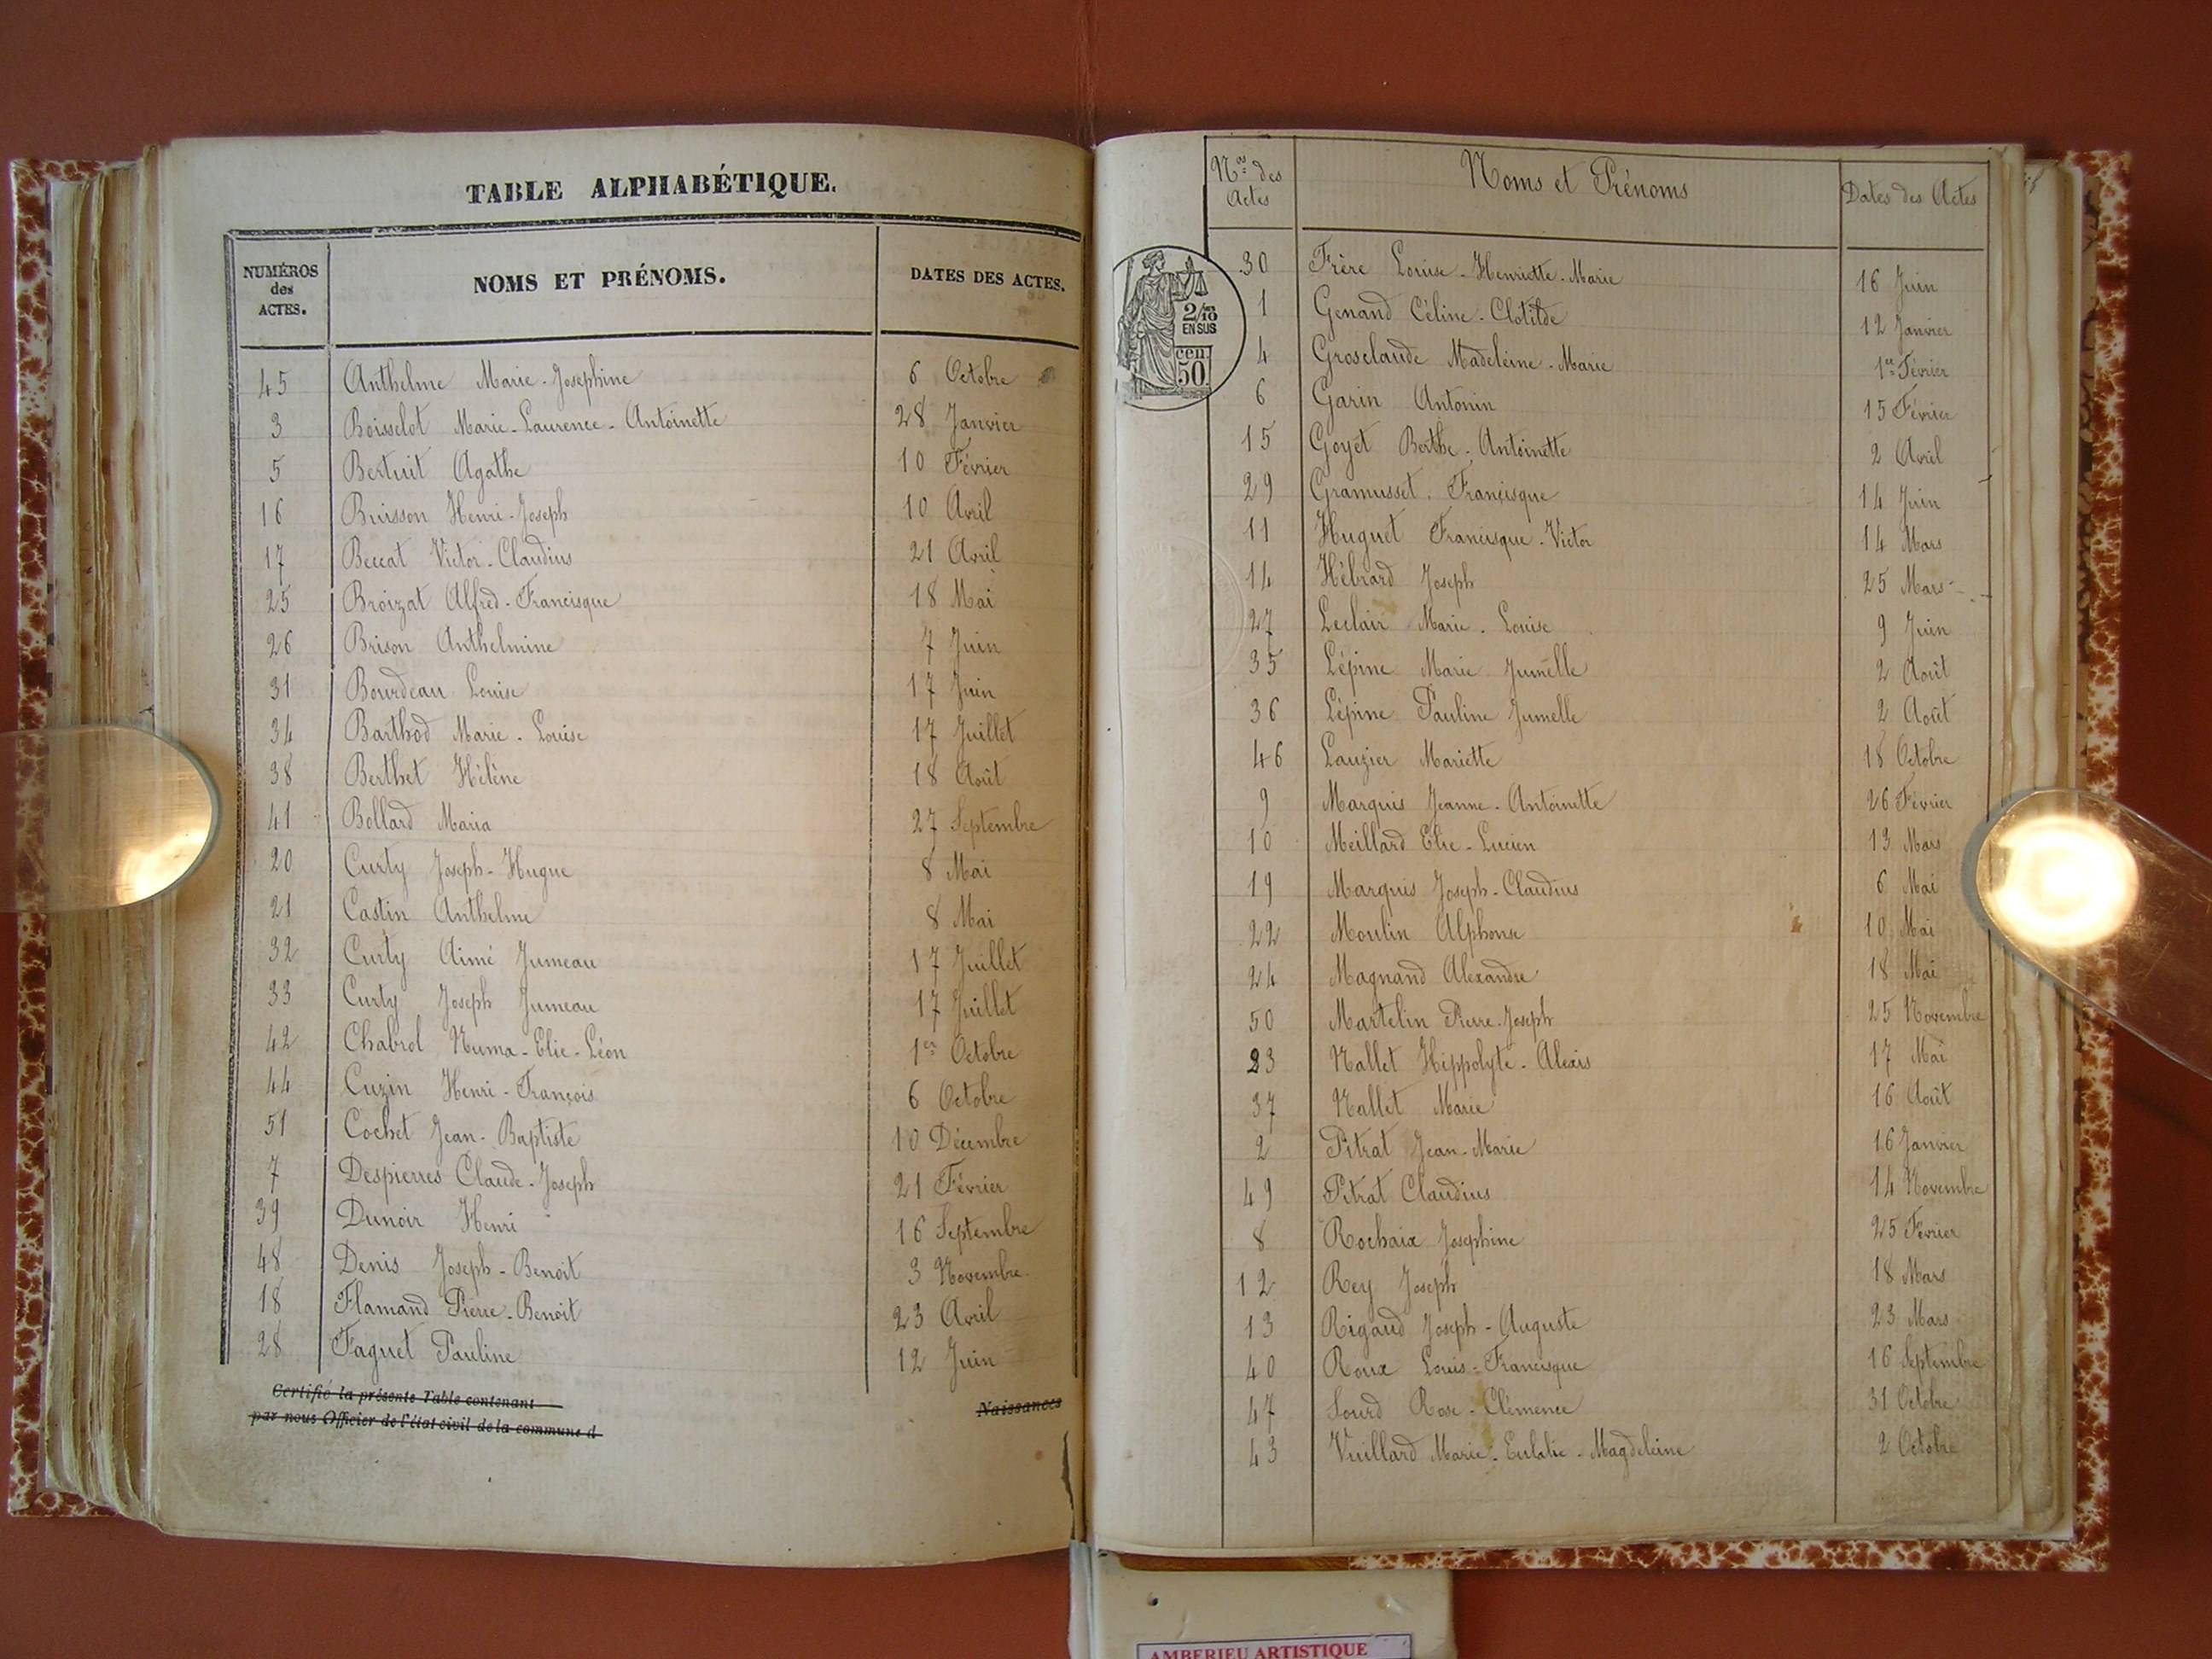 TABLE ALPHABÉTIQUE.
NUMÉROS des ACTES. NOMS ET PRÉNOMS. DATES DES ACTES.
45 Anthelme Marie-Josephine 6 Octobre
3 Boisselot Marie-Laurence-Antoinette 28 Janvier
5 Bertuit Agathe 10 Février
16 Buisson Henri-Joseph 10 Avril
17 Beccat Victor-Claudius 21 Avril
25 Broizat Alfred-Francisque 18 Mai
26 Brison Anthelmine 7 Juin
31 Bourdeau Louise 17 Juin
34 Barthod Marie-Louise 17 Juillet
38 Berthet Hélène 18 Août
41 Bollard Maria 27 Septembre
20 Curty Joseph-Hugue 8 Mai
21 Castin Anthelme 8 Mai
32 Curty Aimé Jumeau 17 Juillet
33 Curty Joseph Jumeau 17 Juillet
42 Chabrol Numa-Elie-Léon 1er Octobre
44 Cuzin Henri-François 6 Octobre
51 Cochet Jean-Baptiste 10 Décembre
7 Despierres Claude-Joseph 21 Février
39 Dunoir Henri 16 Septembre
48 Denis Joseph-Benoit 3 Novembre
18 Flamand Pierre-Benoit 23 Avril
28 Faguet Pauline 12 Juin
Certifié la présente Table contenant Naissances
par nous Officier de l'état civil de la commune d
Nos des Actes Noms et Prénoms Dates des Actes
30 Frère Louise-Henriette-Marie 16 Juin
1 Genand Céline-Clotilde 12 Janvier
4 Grosclaude Madeleine-Marie 1er Février
6 Garin Antonin 15 Février
15 Goyet Berthe-Antoinette 2 Avril
29 Gramusset Francisque 14 Juin
11 Huguet Francisque-Victor 14 Mars
14 Hébrard Joseph 25 Mars
27 Leclair Marie-Louise 9 Juin
35 Lépine Marie Jumelle 2 Août
36 Lépine Pauline Jumelle 2 Août
46 Lauzier Mariette 18 Octobre
9 Marquis Jeanne-Antoinette 26 Février
10 Meillard Elie-Lucien 13 Mars
19 Marquis Joseph-Claudius 6 Mai
22 Moulin Alphonse 10 Mai
24 Magnand Alexandre 18 Mai
50 Martelin Pierre-Joseph 25 Novembre
23 Nallet Hippolyte-Alexis 17 Mai
37 Nallet Marie 16 Août
2 Pitrat Jean-Marie 16 Janvier
49 Pitrat Claudius 14 Novembre
8 Rochaix Josephine 25 Février
12 Rey Joseph 18 Mars
13 Rigaud Joseph-Auguste 23 Mars
40 Roux Louis-Francisque 16 Septembre
47 Sourd Rose-Clémence 31 Octobre
43 Vuillard Marie-Eulalie-Magdeleine 2 Octobre
2/10
EN SUS
50 cen.
AMBERIEU ARTISTIQUE